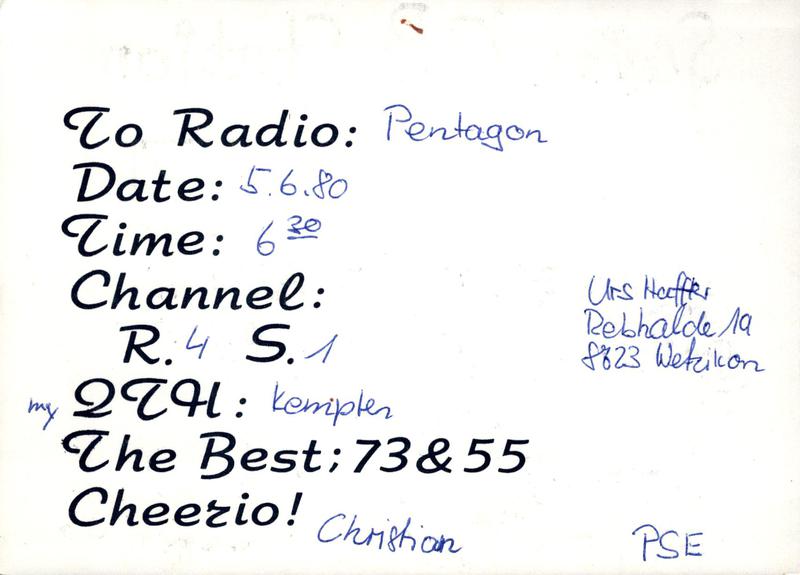 To Radio: Pentagon
Date: 5.6.80
Time: 6 30
Channel:
R. 4 S. 1
my QTH: Kempten
The Best; 73 & 55
Cheerio!
Christian
Urs
Rebhalde 19
8623 Wetzikon
PSE